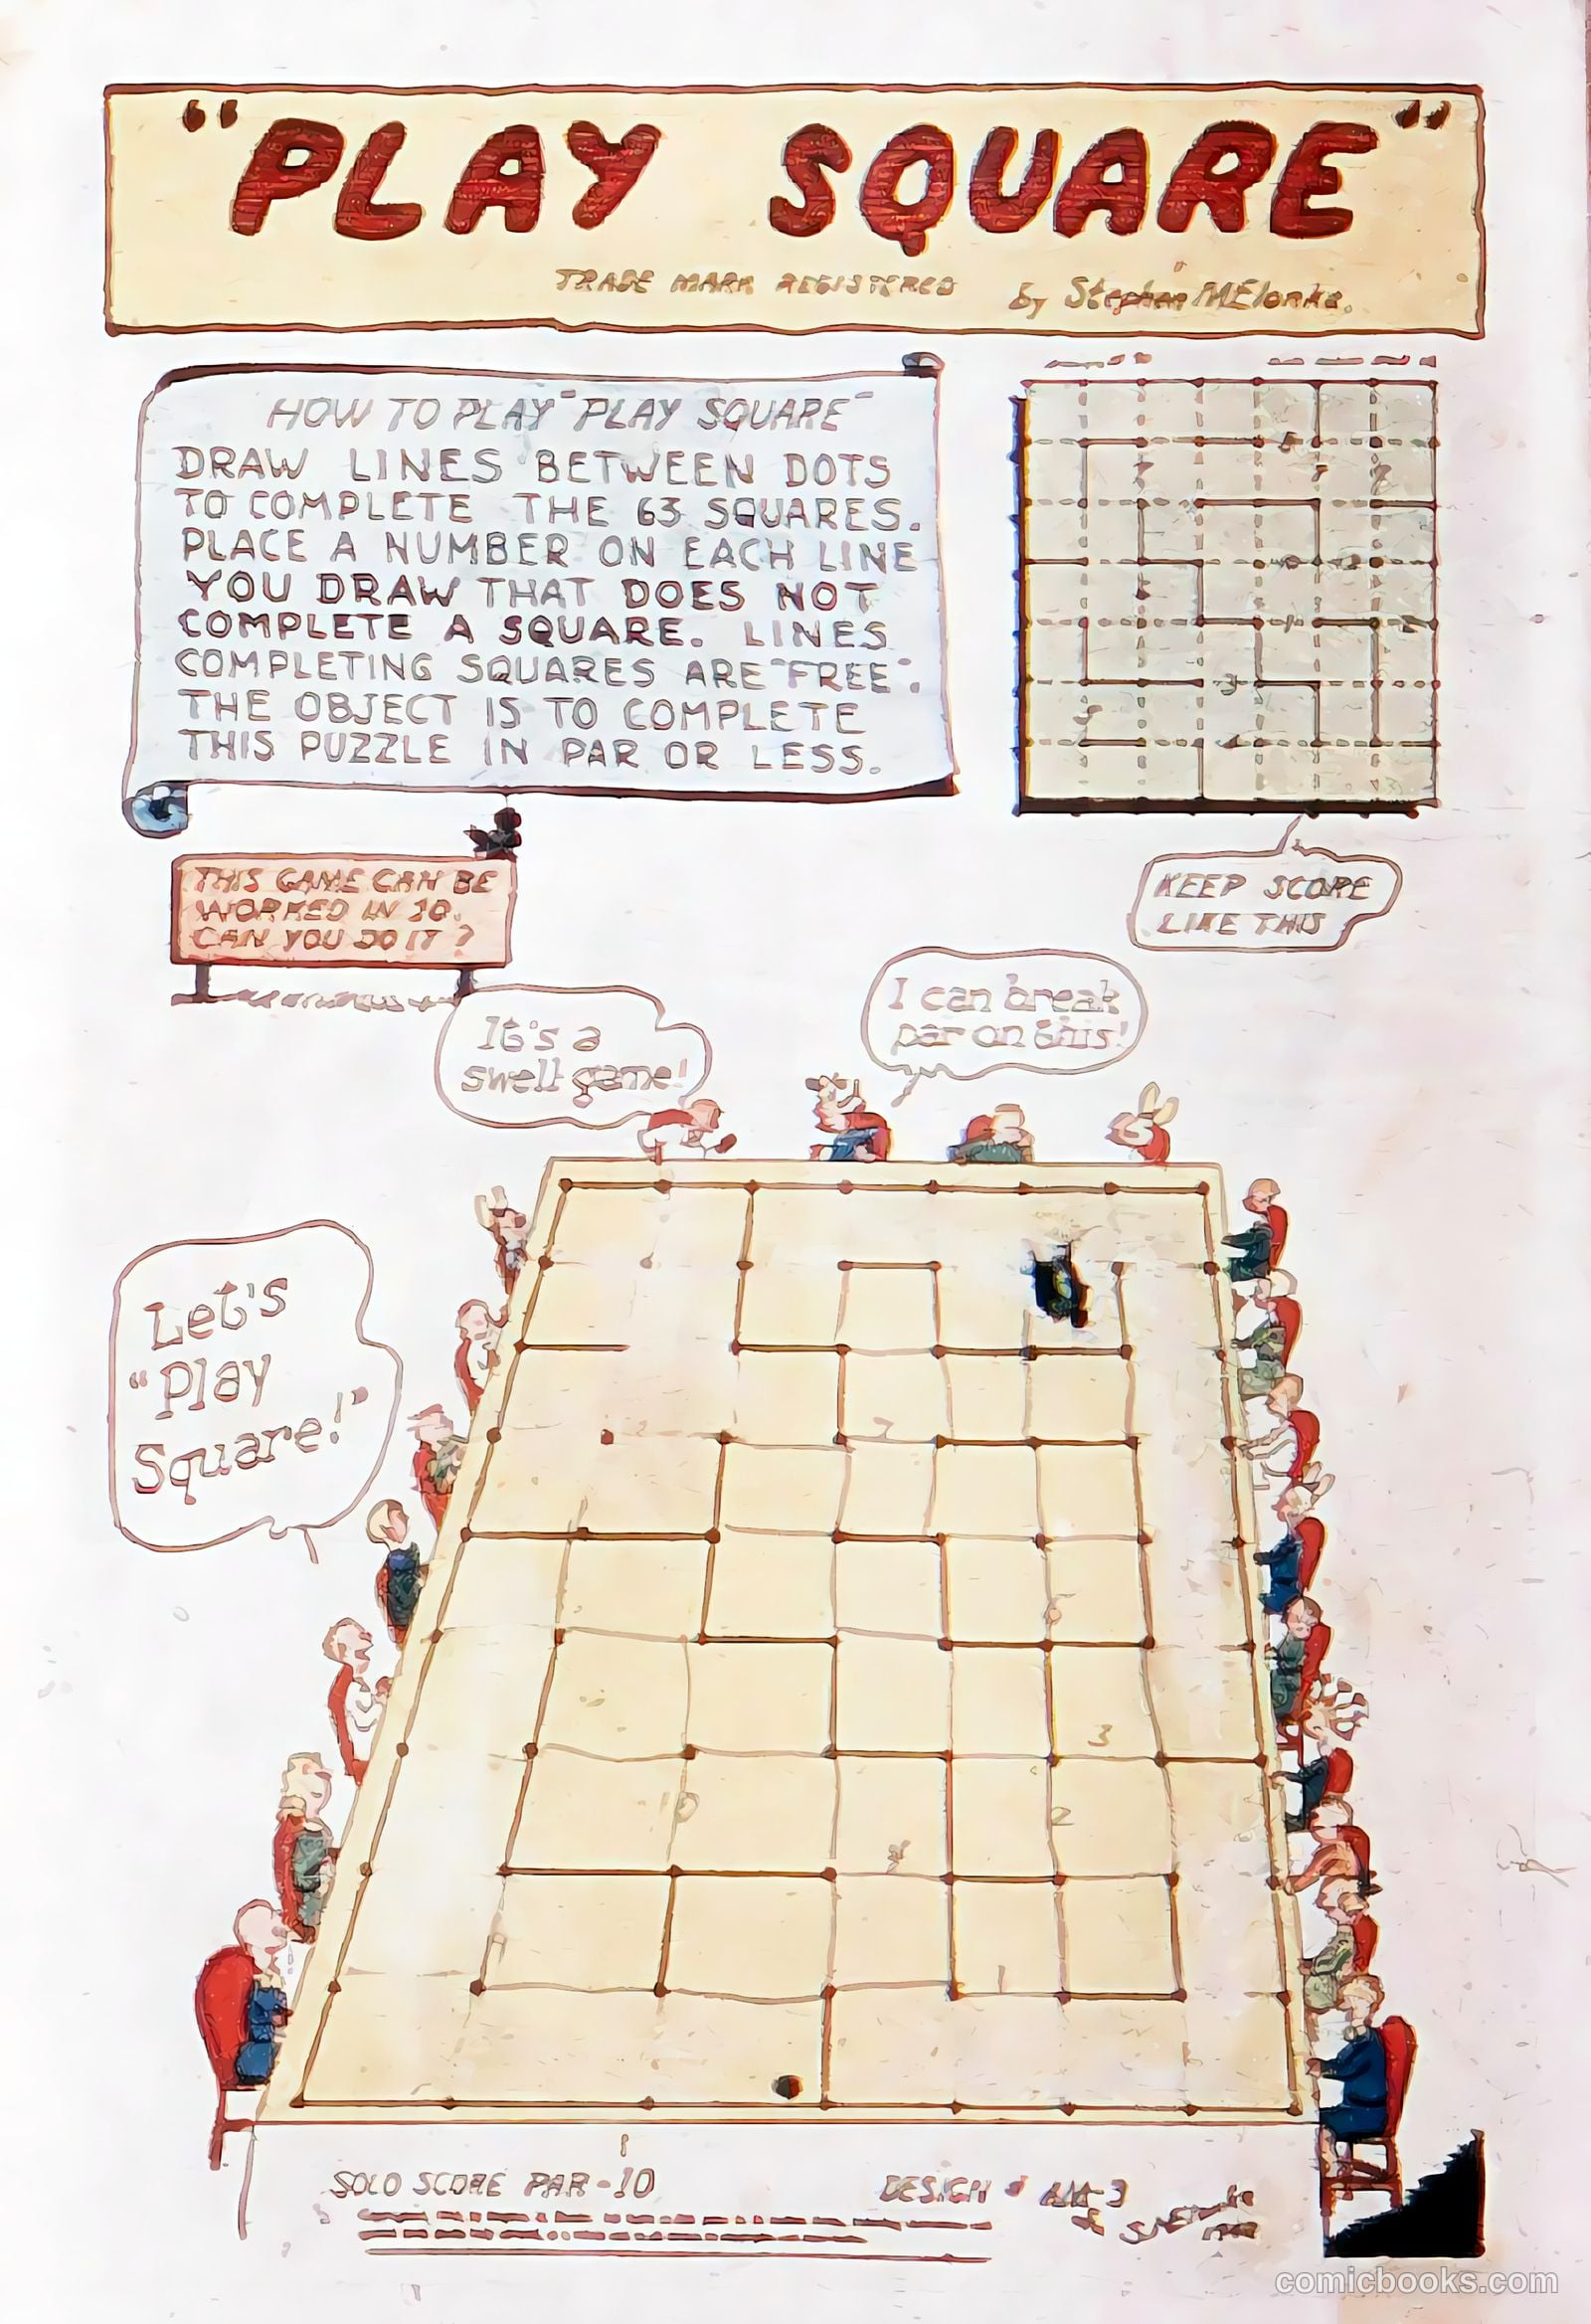 "PLAY SQUARE"
TRADE MARK REGISTERED by Stephen M Elonka.
HOW TO PLAY "PLAY SQUARE"
DRAW LINES BETWEEN DOTS
TO COMPLETE THE 63 SQUARES.
PLACE A NUMBER ON EACH LINE
YOU DRAW THAT DOES NOT
COMPLETE A SQUARE. LINES
COMPLETING SQUARES ARE "FREE".
THE OBJECT IS TO COMPLETE
THIS PUZZLE IN PAR OR LESS.
THIS GAME CAN BE
WORKED IN 10.
CAN YOU DO IT?
KEEP SCORE
LIKE THIS
It's a
swell game!
I can break
par on this!
Let's
"Play
Square!"
2
3
2
10
1
SOLO SCORE PAR-10
DESIGN
comicbooks.com